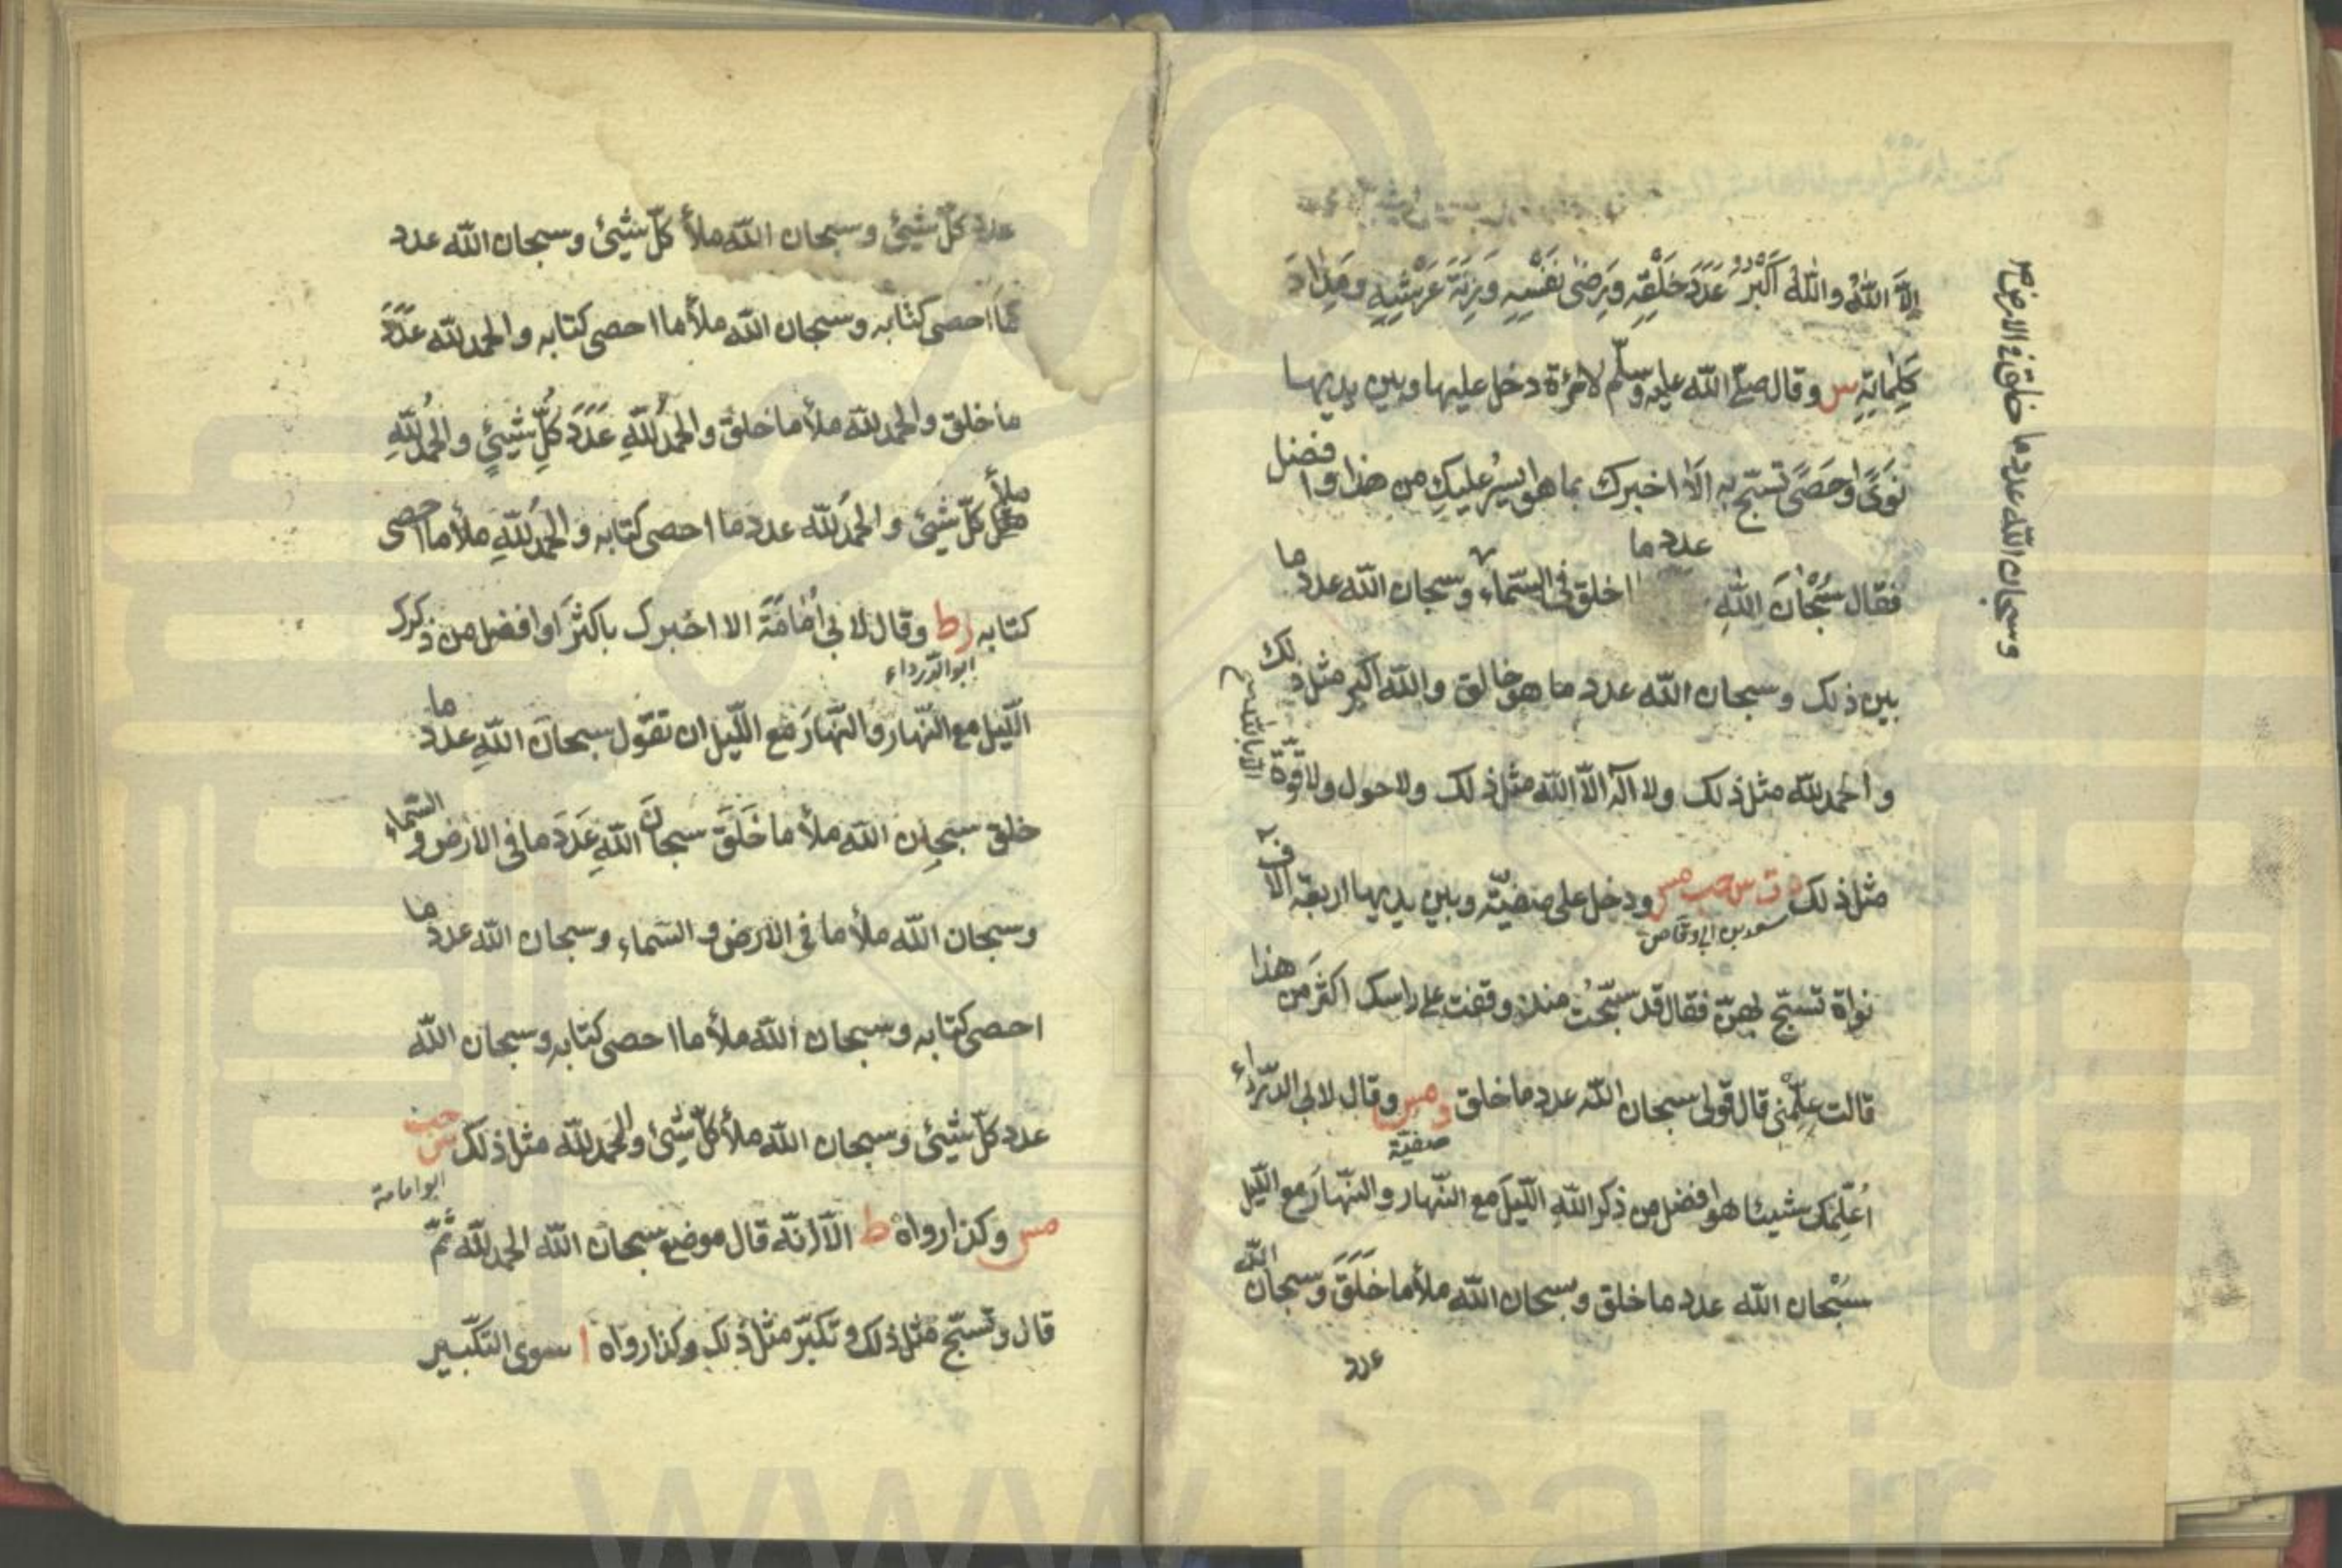 إِلَّا اللّٰهُ وَاللّٰهُ أَكْبَرُ عَدَدَ خَلْقِهِ وَرِضٰى نَفْسِهِ وَزِنَةَ عَرْشِهِ وَمِدَادَ
كَلِمَاتِهِ س وقال صلّى اللّه عليه وسلّم لامرءة دخل عليها وبين يديها
نَوىً او حَصًى تسبّح به اَلَا اخبرك بما هو ايسر عليكِ من هذا وافضل
فقال سُبْحَانَ اللّٰهِ عدد ما خلق فى السّماء وسبحان اللّه عدد ما
خلق فى الارض
وسبحان اللّه عدد ما
بين ذلك وسبحان اللّه عدد ما هو خالق واللّه اكبر مثل ذلك
والحمد للّه مثل ذلك ولا اله الّا اللّه مثل ذلك ولا حول ولا قوّة
الّا باللّه
مثل ذلك د ت س حب مس ودخل على صفيّة وبين يديها اربعة الاف
سعد بن ابى وقاص
نواة تسبّح بهنّ فقال قد سبّحتُ منذ وقفت على راسك اكثر من هذا
قالت علّمنى قال قولى سبحان اللّه عدد ما خلق د مس وقال لابى الدّرداء
صفيّة
اُعلّمك شيئا هو افضل من ذكر اللّهِ اللّيلَ مع النّهار والنّهارَ مع اللّيل
سُبْحان اللّه عدد ما خلق وسبحان اللّه ملأ ما خَلَقَ وسبحان اللّه
عدد
عدد كلّ شيئ وسبحان اللّه ملأ كلّ شيئ وسبحان اللّه عدد
ما احصى كتابه وسبحان اللّه ملأ ما احصى كتابه والحمد للّه عَدَدَ
ما خلق والحمد للّه ملأ ما خلق والحمدُ للّهِ عَدَدَ كُلِّ شيئٍ والحمدُ للّهِ
ملأ كلّ شيئ والحمدُ للّه عدد ما احصى كتابه والحمدُ للّهِ ملأ ما احصى
كتابه ر ط وقال لابى اُمَامَةَ الا اخبرك باكثرَ او افضل من ذكرك
ابو الدّرداء
اللّيل مع النّهار والنّهارَ مع اللّيل ان تقول سبحان اللّهِ عدد ما
خلق سبحان اللّه ملأ ما خَلَقَ سبحانَ اللّهِ عَدَدَ ما فى الارض والسّماء
وسبحان اللّه ملأ ما فى الارض والسّماء وسبحان اللّه عدد ما
احصى كتابه وسبحان اللّه ملأ ما احصى كتابه وسبحان اللّه
عدد كلّ شيئ وسبحان اللّه ملأ كلّ شيئ والحمد للّه مثل ذلك س حب
ابو امامة
مس وكذا رواه ط الّا انّه قال موضع سبحان اللّه الحمد للّه ثُمّ
قال وتسبّح مثل ذلك وتكبّر مثل ذلك وكذا رواه ا سوى التّكبير
www.ical.ir